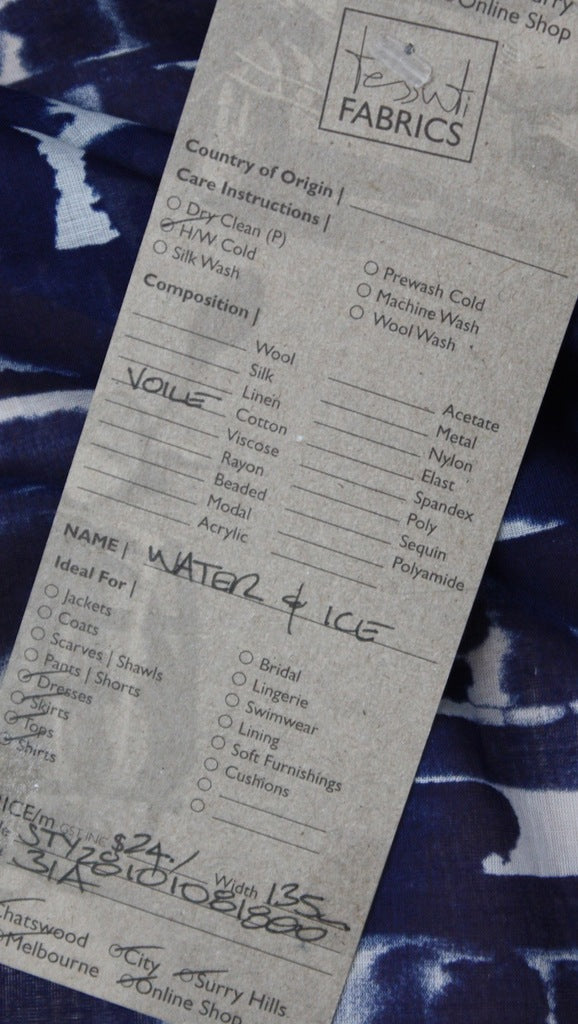 Surry
Online Shop
tessuti
FABRICS
Country of Origin |
Care Instructions |
Dry Clean (P)
H/W Cold
Silk Wash
Prewash Cold
Machine Wash
Wool Wash
Composition |
Wool
Silk
Linen
VOILE Cotton
Viscose
Rayon
Beaded
Modal
Acrylic
Acetate
Metal
Nylon
Elast
Spandex
Poly
Sequin
Polyamide
NAME | WATER & ICE
Ideal For |
Jackets
Coats
Scarves | Shawls
Pants | Shorts
Dresses
Skirts
Tops
Shirts
Bridal
Lingerie
Swimwear
Lining
Soft Furnishings
Cushions
RICE/m GST INC $24./ Width 135
STY28101081800
31A
Chatswood City Surry Hills
Melbourne Online Shop